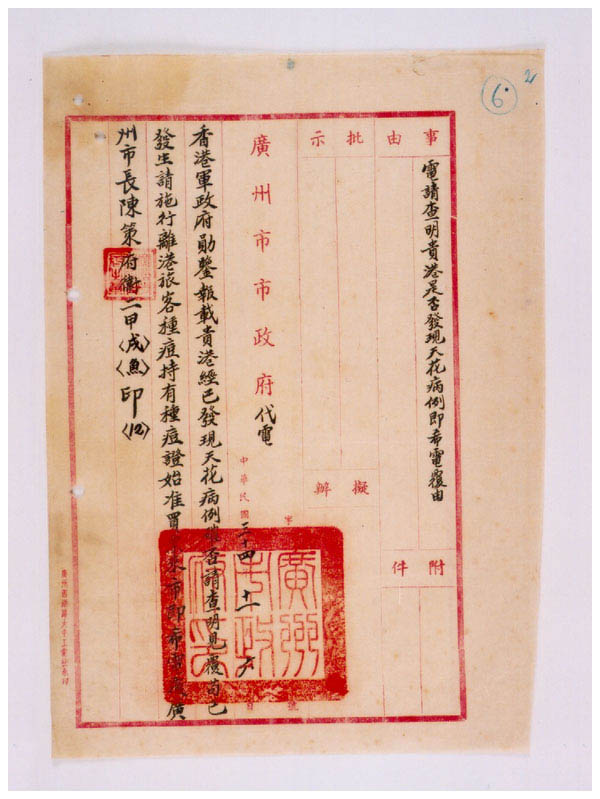 6
2
事由
電請查明貴港是否發現天花病例即希電覆由
附件
批示
擬辦
廣州市市政府代電
中華民國三十四 十二 六
香港軍政府勛鑒報載貴港經已發現天花病例確否請查明見覆茍已
發生請施行離港旅客種痘持有種痘證始准買 來市即希 廣
州市長陳策府衛二甲戌〈魚〉印〈12〉
廣州市政府印